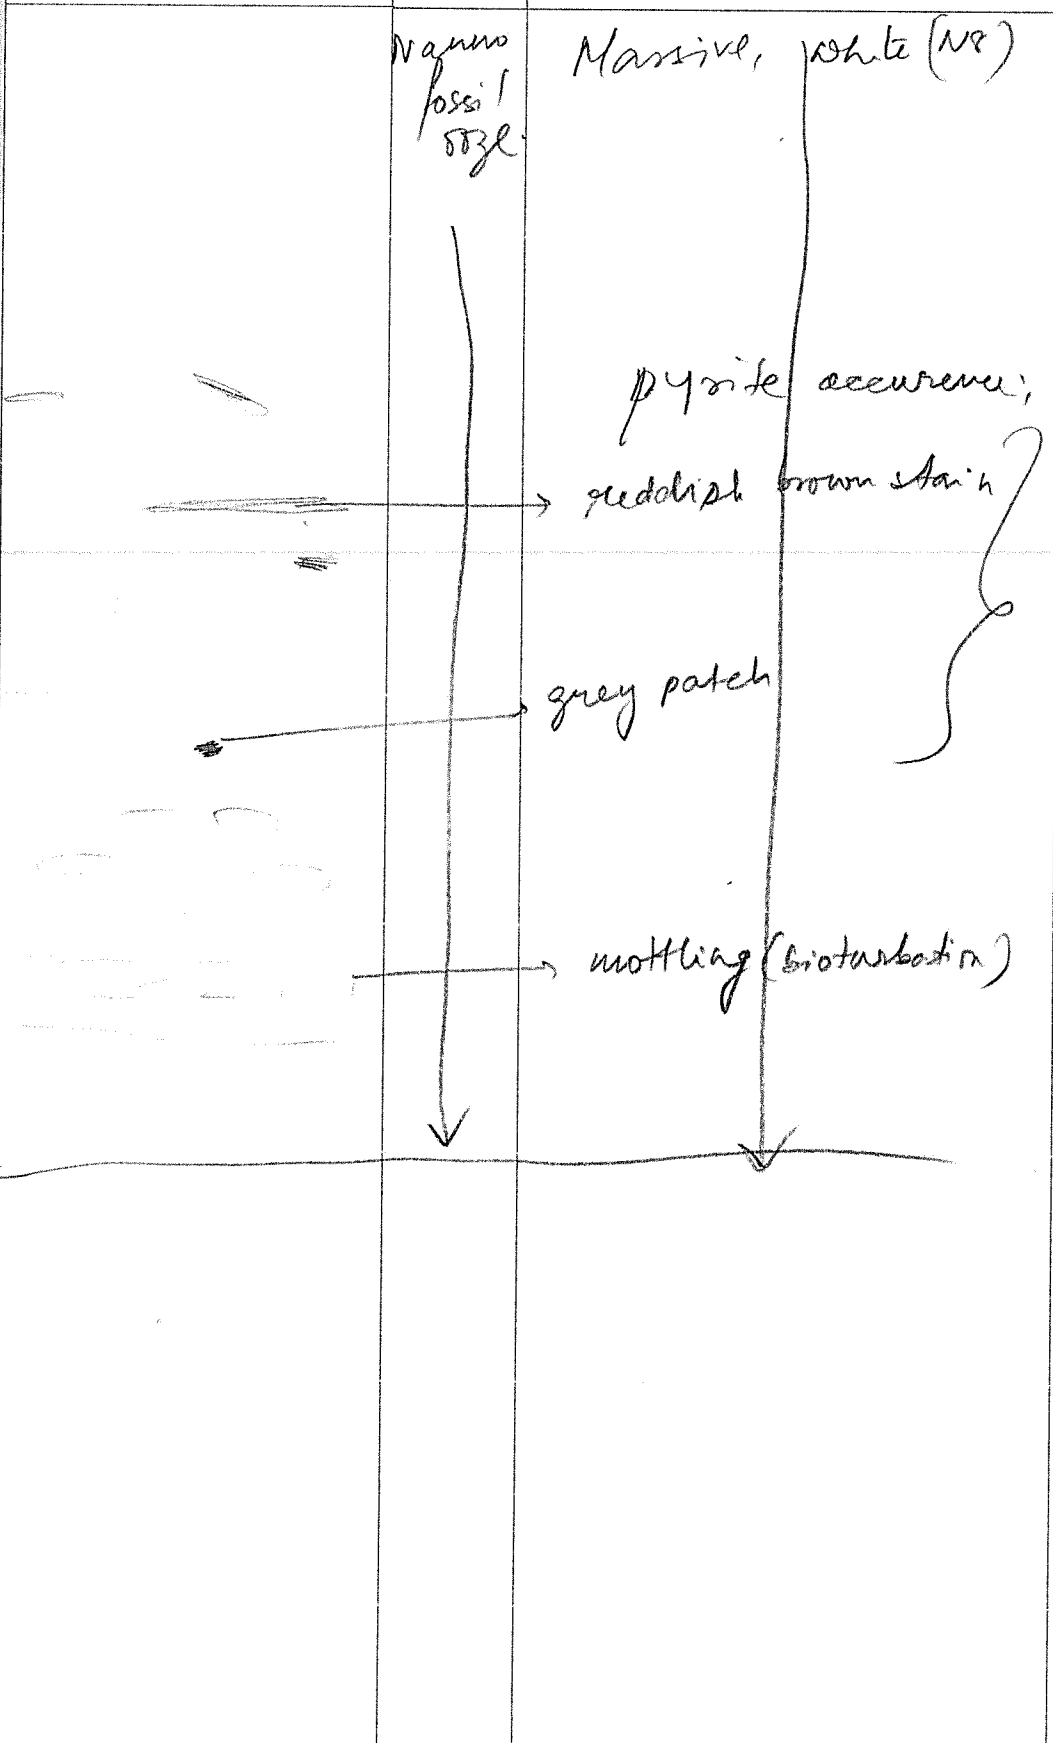 Nanno
fossil
ooze.
Massive, white (N8)
pyrite occurence;
reddish brown stain
grey patch
mottling (bioturbation)